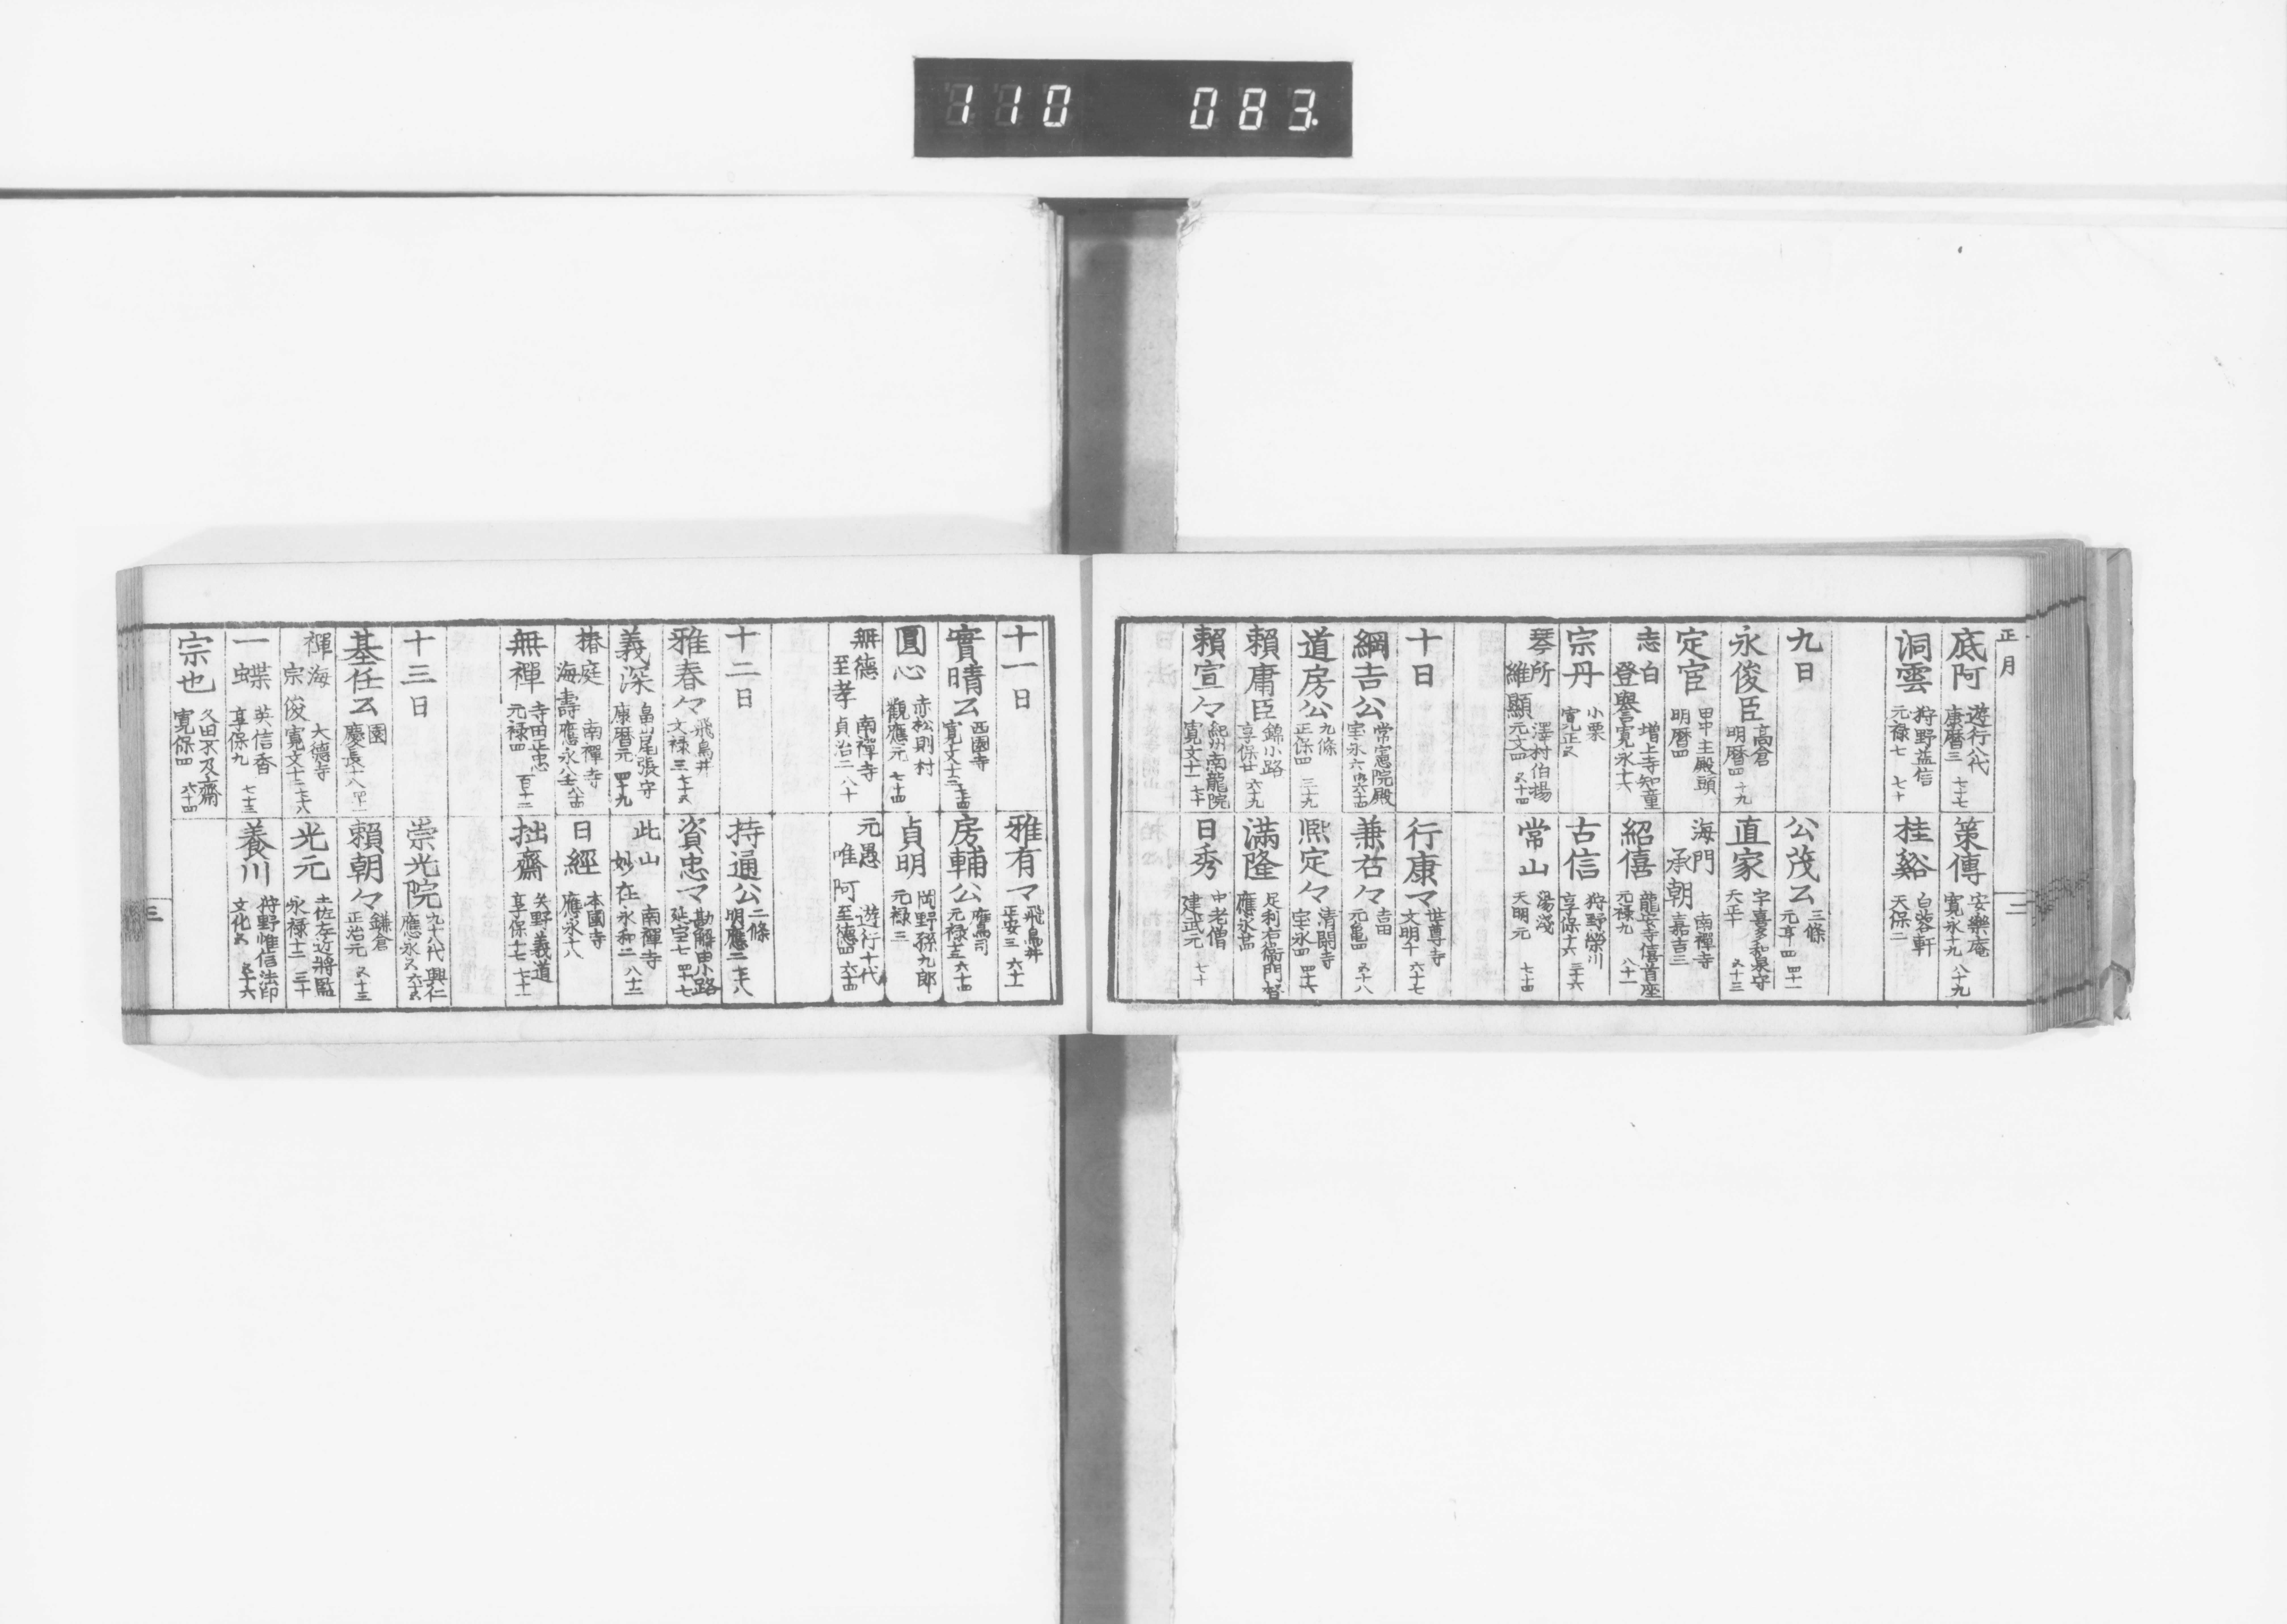 110 083.
正月
底阿 遊行八代 康暦三 七十七
策傳 安樂庵 寛永十九 八十九
洞雲 狩野益信 元禄七 七十
桂谿 白蓉軒 天保二
二
九日
公茂公 三條 元亨四 四十一
永俊臣 高倉 明暦四
直家 宇喜多和泉守 天正十 五十三
定宦 甲斐主殿頭 明暦四
海門承朝 南禪寺 嘉吉三
志白登譽 増上寺知童 寛永十六
紹僖 龍安寺僖首座 元禄九 八十一
宗丹 小栗 寛正五
古信 狩野榮川 享保十六 三十六
琴所維顯 澤村伯揚 元文四 五十四
常山 湯淺 天明元 七十四
十日
行康マ 世尊寺 文明十 六十七
綱吉公 常憲院殿 宝永六 六十四
兼右々 吉田 元亀四 五十八
道房公 九條 正保四 三十九
熙定々 清閑寺 宝永四 四十六
頼庸臣 錦小路 享保廿 六十九
満隆 足利右衞門督 應永廿四
頼宣々 紀州南龍院 寛文十一 七十
日秀 中老僧 建武元 七十
十一日
雅有マ 飛鳥井 正安三 六十一
實晴公 西園寺 寛文十三 七十四
房輔公 鷹司 元禄十三 六十四
圓心 赤松則村 觀應元 七十四
貞明 岡野孫九郎 元禄三
無德至孝 南禪寺 貞治二 八十
元愚唯阿 遊行十代 至德四 六十四
十二日
持通公 二條 明應二 七十八
雅春々 飛鳥井 文禄三 七十五
資忠マ 勘解由小路 延宝七 四十七
義深 畠山尾張守 康暦元 四十九
此山妙在 南禪寺 永和二 八十二
椿庭海壽 南禪寺 應永八 八十四
日經 本國寺 應永十八
無禪 寺田正忠 元禄四 百十二
拙齋 矢野義道 享保十七 七十一
十三日
崇光院 九十八代興仁 應永五 六十五
基任公 園 慶長十八 四十一
頼朝々 鎌倉 正治元 五十三
禪海宗俊 大德寺 寛文十二 七十八
光元 土佐左近將監 永禄十二 三十
一蝶 英信香 享保九 七十三
養川 狩野惟信法印 文化五 五十六
宗也 久田不及齋 寛保四 六十四
三